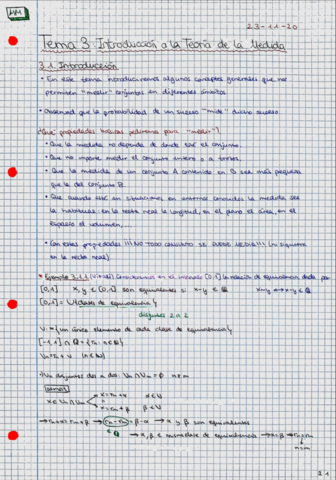 23-11-20
Tema 3: Introducción a la Teoría de la Medida
3.1. Introducción
• En este tema introduciremos algunos conceptos generales que nos
permiten "medir" conjuntos en diferentes ámbitos
• Observad que la probabilidad de un suceso "mide" dicho suceso
¿Qué propiedades básicas pediremos para "medir"?
• Que la medida no dependa de donde esté el conjunto.
• Que no importe medir el conjunto entero o a trozos.
• Que la medida de un conjunto A contenido en B sea más pequeña
que la del conjunto B.
• Que cuando esté en situaciones en entornos conocidos la medida sea
la habitual: en la recta real la longitud, en el plano el área, en el
espacio el volumen, ...
• Con estas propiedades !!! NO TODO CONJUNTO SE PUEDE MEDIR!!! (ni siquiera
en la recta real)
Ejemplo 3.1.1 (Vitali) Consideramos en el intervalo [0,1] la relación de equivalencia dada por
[0,1] x, y ∈ [0,1] son equivalentes si x-y ∈ Q x~y ⟺ x-y ∈ Q
[0,1] = ∪{clases de equivalencia}
disjuntas 2 a 2
V = {un único elemento de cada clase de equivalencia}
[-1,1] ∩ Q = {rₙ : n ∈ N}
Vₙ = rₙ + V (n ∈ N)
Vₙ disjuntos dos a dos: Vₙ ∩ Vₘ = ∅ n ≠ m
x ∈ Vₙ ∩ Vₘ x = rₙ + α α ∈ V
x = rₘ + β β ∈ V
→ rₙ + α = rₘ + β → rₙ - rₘ = β - α → α y β son equivalentes
∈ Q → α, β ∈ misma clase de equivalencia → α = β → rₙ = rₘ
n = m